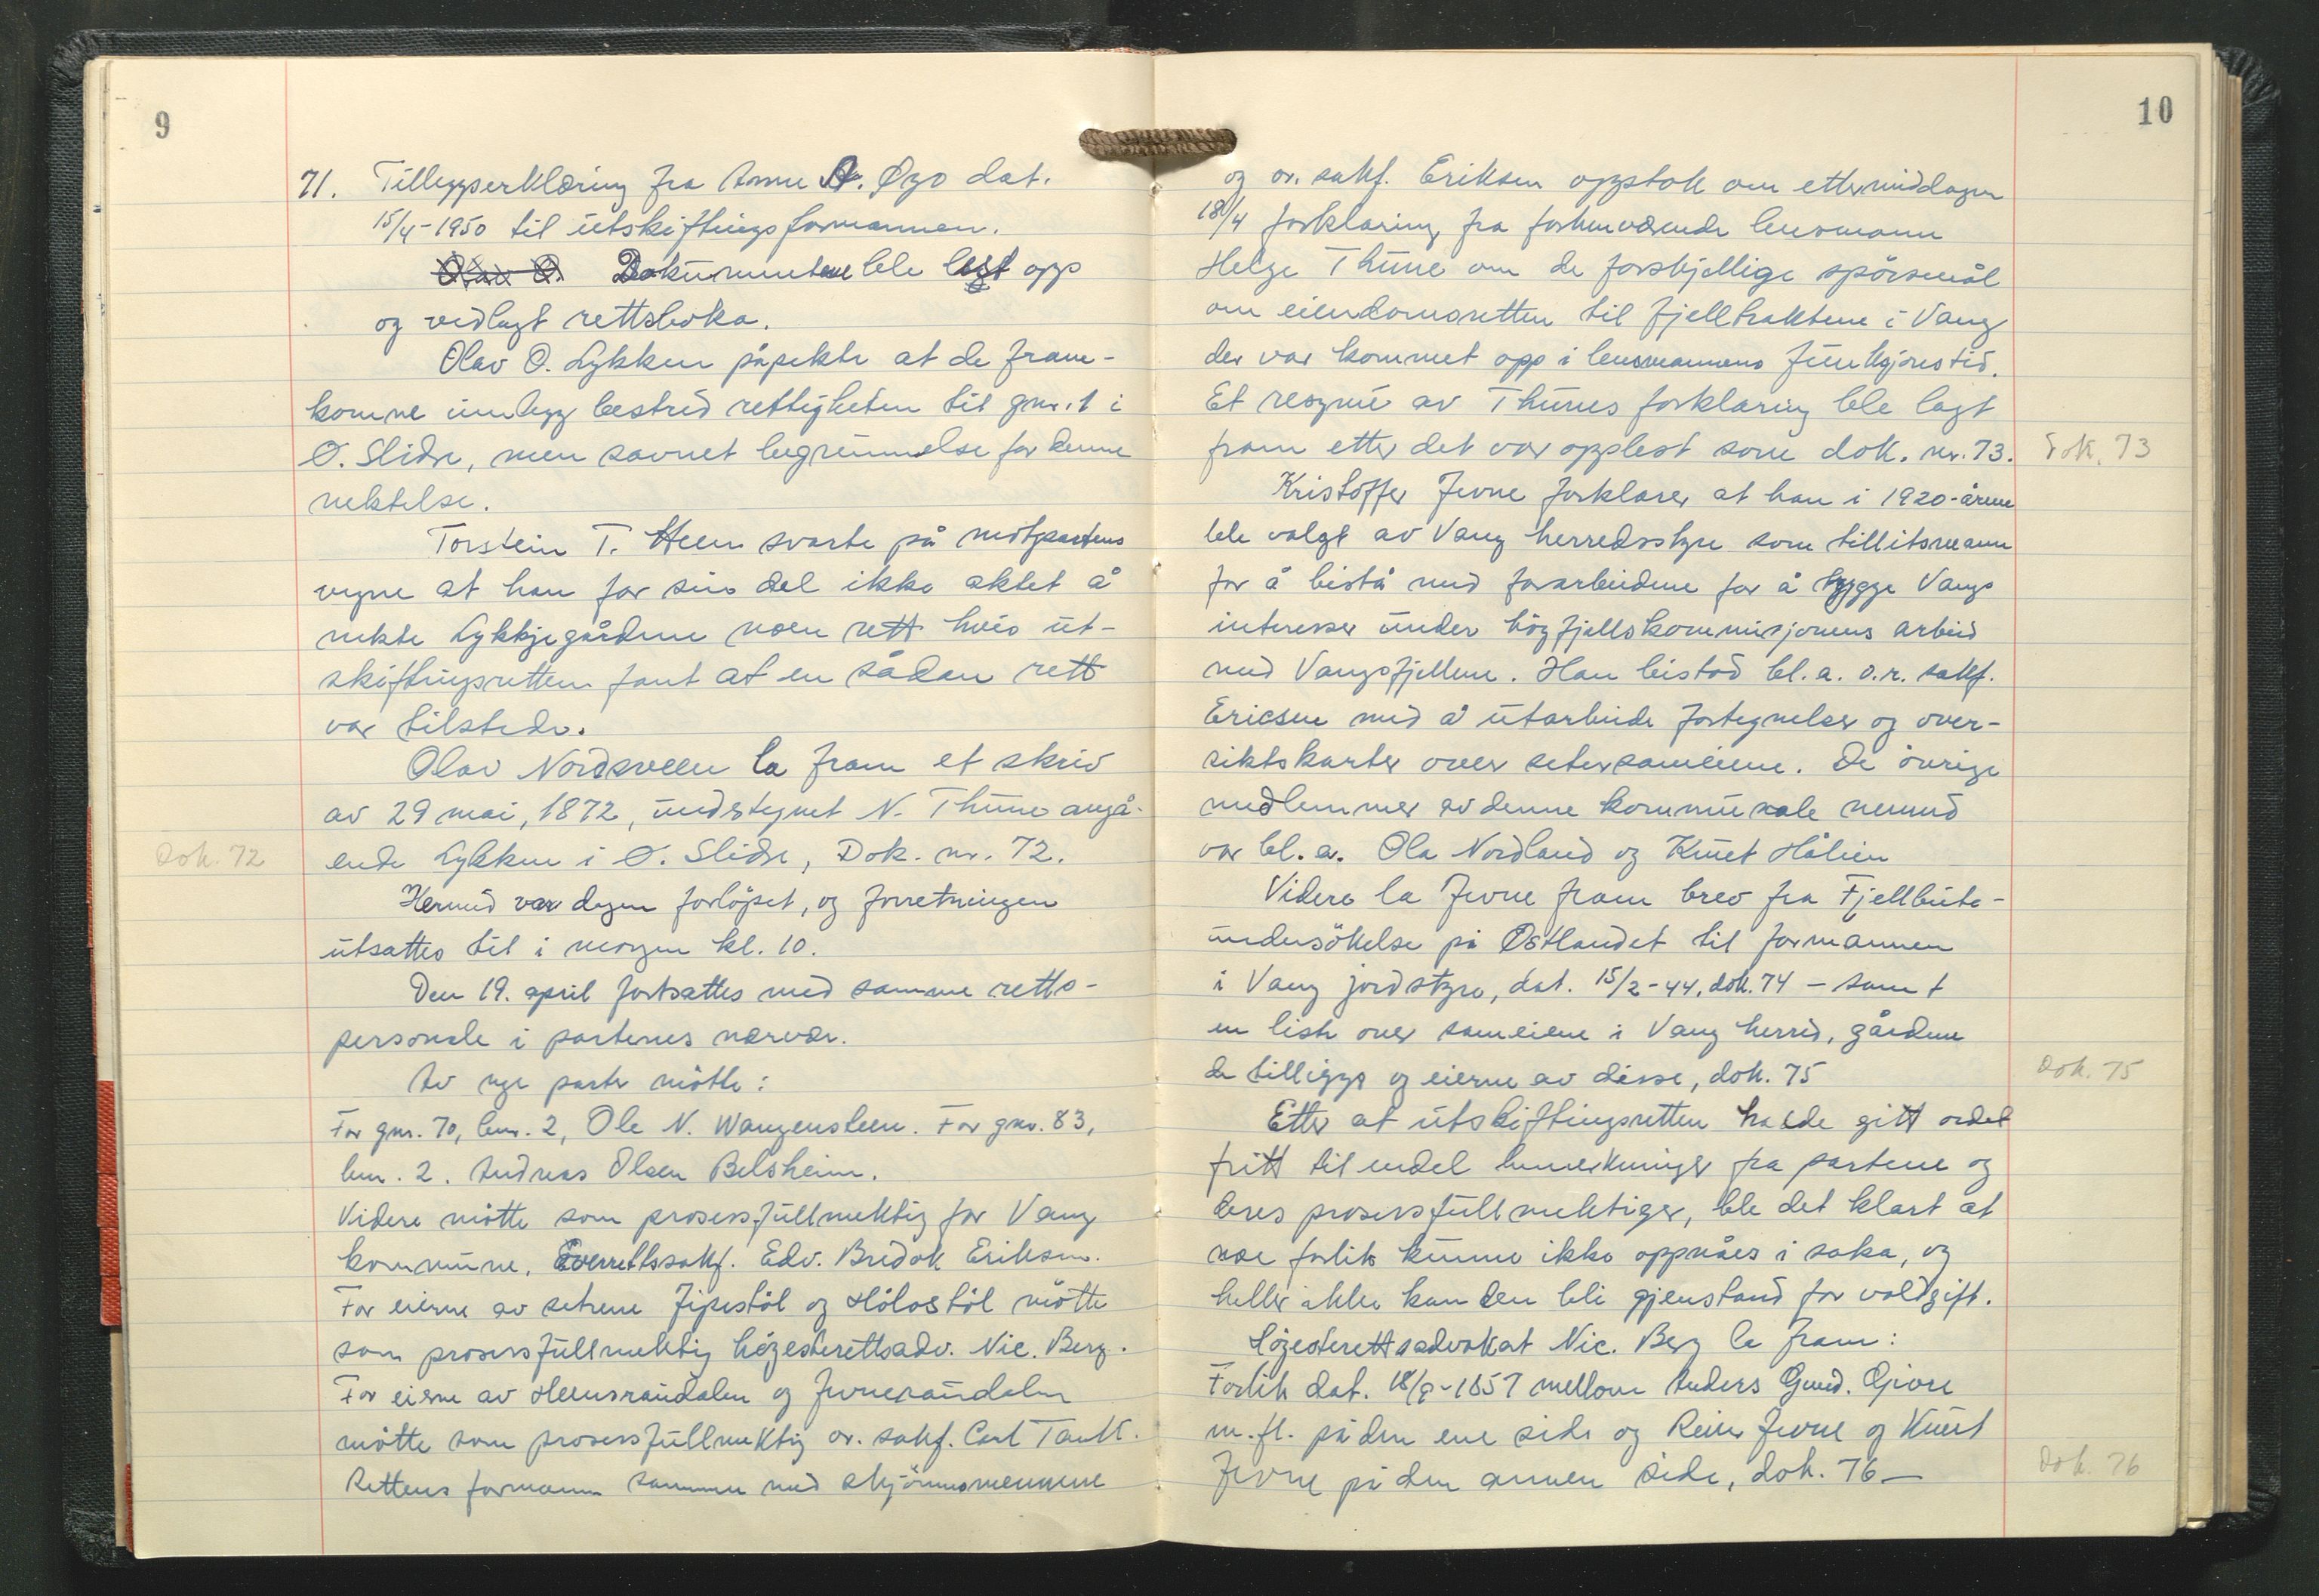 9
71. Tilleggserklæring fra Anne A. Øyo dat.
15/4-1950 til utskiftingsformannen.
Olav O. Dokumentene ble lest opp
og vedlagt rettsboka.
Olav O. Lykken påpekte at de fram-
komne innlegg bestred rettigheten til gnr. 1 i
Ø. Slidre, men savnet begrunnelse for denne
nektelse.
Torstein T. Heen svarte på motpartens
vegne at han for sin del ikke aktet å
nekte Lykkjegårdene noen rett hvis ut-
skiftingsretten fant at en sådan rett
var tilstede.
Olav Nordsveen la fram et skriv
av 29 mai, 1872, undertegnet N. Thune angå-
ende Lykken i Ø. Slidre, Dok. nr. 72.
Dok. 72
Hermed var dagen forløpet, og forretningen
utsattes til i morgen kl. 10.
Den 19. april fortsattes med samme retts-
personale i partenes nærvær.
Av nye parter møtte:
For gnr. 70, bnr. 2, Ole N. Wangensteen. For gnr. 83,
bnr. 2. Andreas Olsen Belsheim.
Videre møtte som prosessfullmektig for Vang
kommune, Overrettssakf. Edv. Bredok Eriksen.
For eierne av setrene Jipestøl og Hølostøl møtte
som prosessfullmektig høgesterettsadv. Nic. Berg.
For eierne av Heensrandalen og Jevnerandalen
møtte som prosessfullmektig or. sakf. Carl Tank.
Rettens formann sammen med skjønnsmennene
10
og or. sakf. Eriksen oppstok om ettermiddagen
18/4 forklaring fra forhenværende lensmann
Helge Thune om de forskjellige spørsmål
om eiendomsretten til fjelltraktene i Vang
der var kommet opp i lensmannens funksjonstid.
Et resymé av Thunes forklaring ble lagt
fram etter det var opplest som dok. nr. 73.
Dok. 73
Kristoffer Jevne forklarer at han i 1920-årene
ble valgt av Vang herredsstyre som tillitsmann
for å bistå med forarbeidene for å trygge Vangs
interesser under høgfjellskommisjonens arbeid
med Vangsfjellene. Han bistod bl.a. o.r. sakf.
Ericsen med å utarbeide fortegnelser og over-
siktskarter over setersameiene. De øvrige
medlemmer av denne kommunale nemnd
var bl.a. Ola Nordland og Knut Hålien
Videre la Jevne fram brev fra Fjellbeite-
undersøkelse på Østlandet til formannen
i Vang jordstyre, dat. 15/2-44, dok. 74 - samt
en liste over sameiene i Vang herred, gårdene
de tilligger og eierne av disse, dok. 75
Dok. 75
Etter at utskiftingsretten hadde gitt ordet
fritt til endel bemerkninger fra partene og
deres prosessfullmektiger, ble det klart at
noe forlik kunne ikke oppnåes i saka, og
heller ikke kan den bli gjenstand for voldgift.
Høgesterettsadvokat Nic. Berg la fram:
Forlik dat. 18/9-1857 mellom Anders Gund.
m.fl. på den ene side og Reier Jevne og Knut
Jevne på den annen side, dok. 76 —
Dok. 76